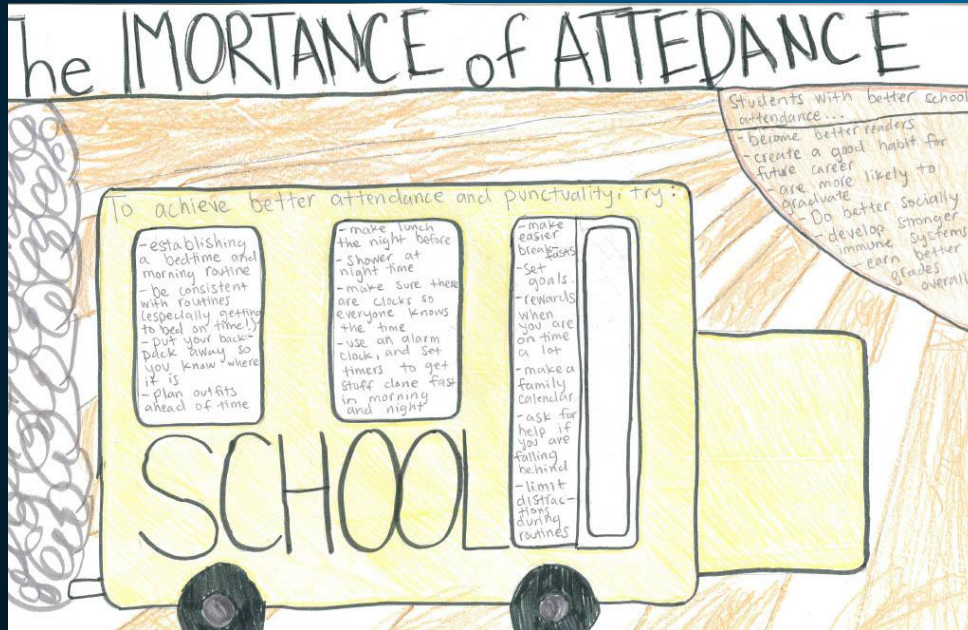 The IMORTANCE of ATTEDANCE
Students with better school
attendance...
- become better readers
- create a good habit for
future career
- are more likely to
graduate
- Do better socially
- develop stronger
immune systems
earn better
grades
overall
To achieve better attendance and punctuality, try:
- establishing
a bedtime and
morning routine
- be consistent
with routines
(especially getting
to bed on time!)
- put your back-
pack away so
you know where
it is
- plan outfits
ahead of time
- make lunch
the night before
- shower at
night time
- make sure there
are clocks so
everyone knows
the time
- use an alarm
clock, and set
timers to get
stuff done fast
in morning
and night
- make
easier
break-
fasts
- set
goals.
- rewards
when
you are
on time
a lot
- make a
family
calendar
- ask for
help if
you are
falling
behind
- limit
distrac-
tions
during
routines
SCHOOL